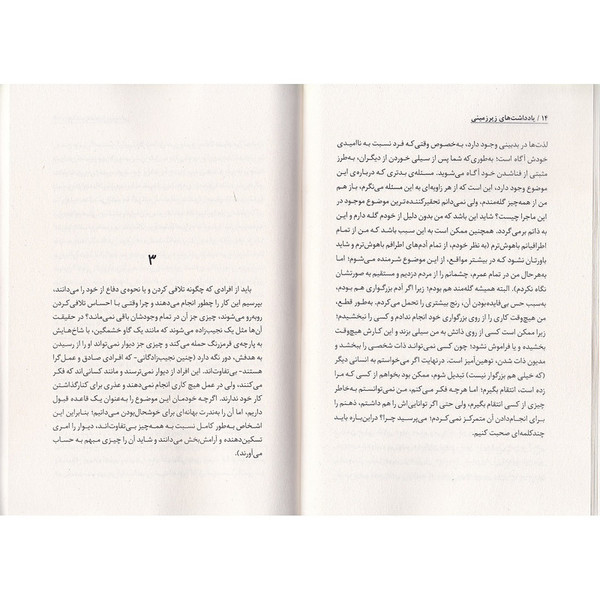 ۱۴ / یادداشت‌های زیرزمینی
لذت‌ها در بدبینی وجود دارد، به‌خصوص وقتی‌که فرد نسبت به ناامیدی
خودش آگاه است؛ به‌طوری‌که شما پس از سیلی خوردن از دیگران، به‌طرز
مثبتی از فناشدن خود آگاه می‌شوید. مسئله‌ی بدتری که درباره‌ی این
موضوع وجود دارد، این است که از هر زاویه‌ای به این مسئله می‌نگرم، باز هم
من از همه‌چیز گله‌مندم، ولی نمی‌دانم تحقیرکننده‌ترین موضوع موجود در
این ماجرا چیست؟ شاید این باشد که من بدون دلیل از خودم گله دارم و این
به ذاتم برمی‌گردد. همچنین ممکن است به این سبب باشد که من از تمام
اطرافیانم باهوش‌ترم (به نظر خودم، از تمام آدم‌های اطرافم باهوش‌ترم و شاید
باورتان نشود که در بیشتر مواقع، از این موضوع شرمنده می‌شوم؛ اما
به‌هرحال من در تمام عمرم، چشمانم را از مردم دزدیم و مستقیم به صورتشان
نگاه نکردم). البته همیشه گله‌مند هم بودم؛ زیرا اگر آدم بزرگواری هم بودم،
به‌سبب حس بی‌فایده‌بودن آن، رنج بیشتری را تحمل می‌کردم. به‌طور قطع،
من هیچ‌وقت کاری را از روی بزرگواری خودم انجام ندادم و کسی را نبخشیدم؛
زیرا ممکن است کسی از روی ذاتش به من سیلی بزند و این کارش هیچ‌وقت
بخشیده و یا فراموش نشود؛ چون کسی نمی‌تواند ذات شخصی را ببخشد و
مدیون ذات شدن، توهین‌آمیز است. درنهایت اگر می‌خواستم به انسانی دیگر
(که خیلی هم بزرگوار نیست) تبدیل شوم، ممکن بود بخواهم از کسی که مرا
زده است، انتقام بگیرم؛ اما هرچه فکر می‌کنم، من نمی‌توانستم به‌خاطر
چیزی از کسی انتقام بگیرم، ولی حتی اگر توانایی‌اش را هم داشتم، ذهنم را
برای انجام‌دادن آن متمرکز نمی‌کردم؛ می‌پرسید چرا؟ دراین‌باره باید
چندکلمه‌ای صحبت کنیم.
۳
باید از افرادی که چگونه تلافی کردن و یا نحوه‌ی دفاع از خود را می‌دانند،
بپرسیم این کار را چطور انجام می‌دهند و چرا وقتی با احساس تلافی‌کردن
روبه‌رو می‌شوند، چیزی جز آن در تمام وجودشان باقی نمی‌ماند؟ در حقیقت
آن‌ها مثل یک نجیب‌زاده می‌شوند که مانند یک گاو خشمگین، با شاخ‌هایش
به پارچه‌ی قرمزرنگ حمله می‌کند و چیزی جز دیوار نمی‌تواند او را از رسیدن
به هدفش، دور نگه دارد (چنین نجیب‌زادگانی- که افرادی صادق و عمل‌گرا
هستند- بی‌تفاوت‌اند. این افراد از دیوار نمی‌ترسند و مانند کسانی که فکر
می‌کنند، ولی در عمل هیچ کاری انجام نمی‌دهند و عذری برای کنارگذاشتن
کار خود ندارند. اگرچه خودمان این موضوع را به‌عنوان یک قاعده قبول
داریم، اما آن را به‌ندرت بهانه‌ای برای خوشحال‌بودن می‌دانیم؛ بنابراین این
اشخاص به‌طور کامل نسبت به همه‌چیز بی‌تفاوت‌اند، دیوار را امری
تسکین‌دهنده و آرامش‌بخش می‌دانند و شاید آن را چیزی مبهم به حساب
می‌آورند).